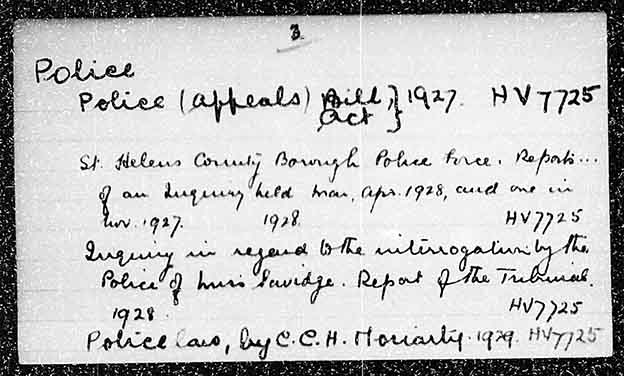 3.
Police
Police (Appeals) Bill, } 1927. HV7725
Act }
St. Helens County Borough Police Force. Reports...
of an Inquiry held Mar, Apr. 1928, and one in
Nov. 1927. 1928. HV7725
Inquiry in regard to the interrogation by the
Police of Miss Savidge. Report of the Tribunal.
1928. HV7725
Police law, by C.C.H. Moriarty. 1929. HV7725